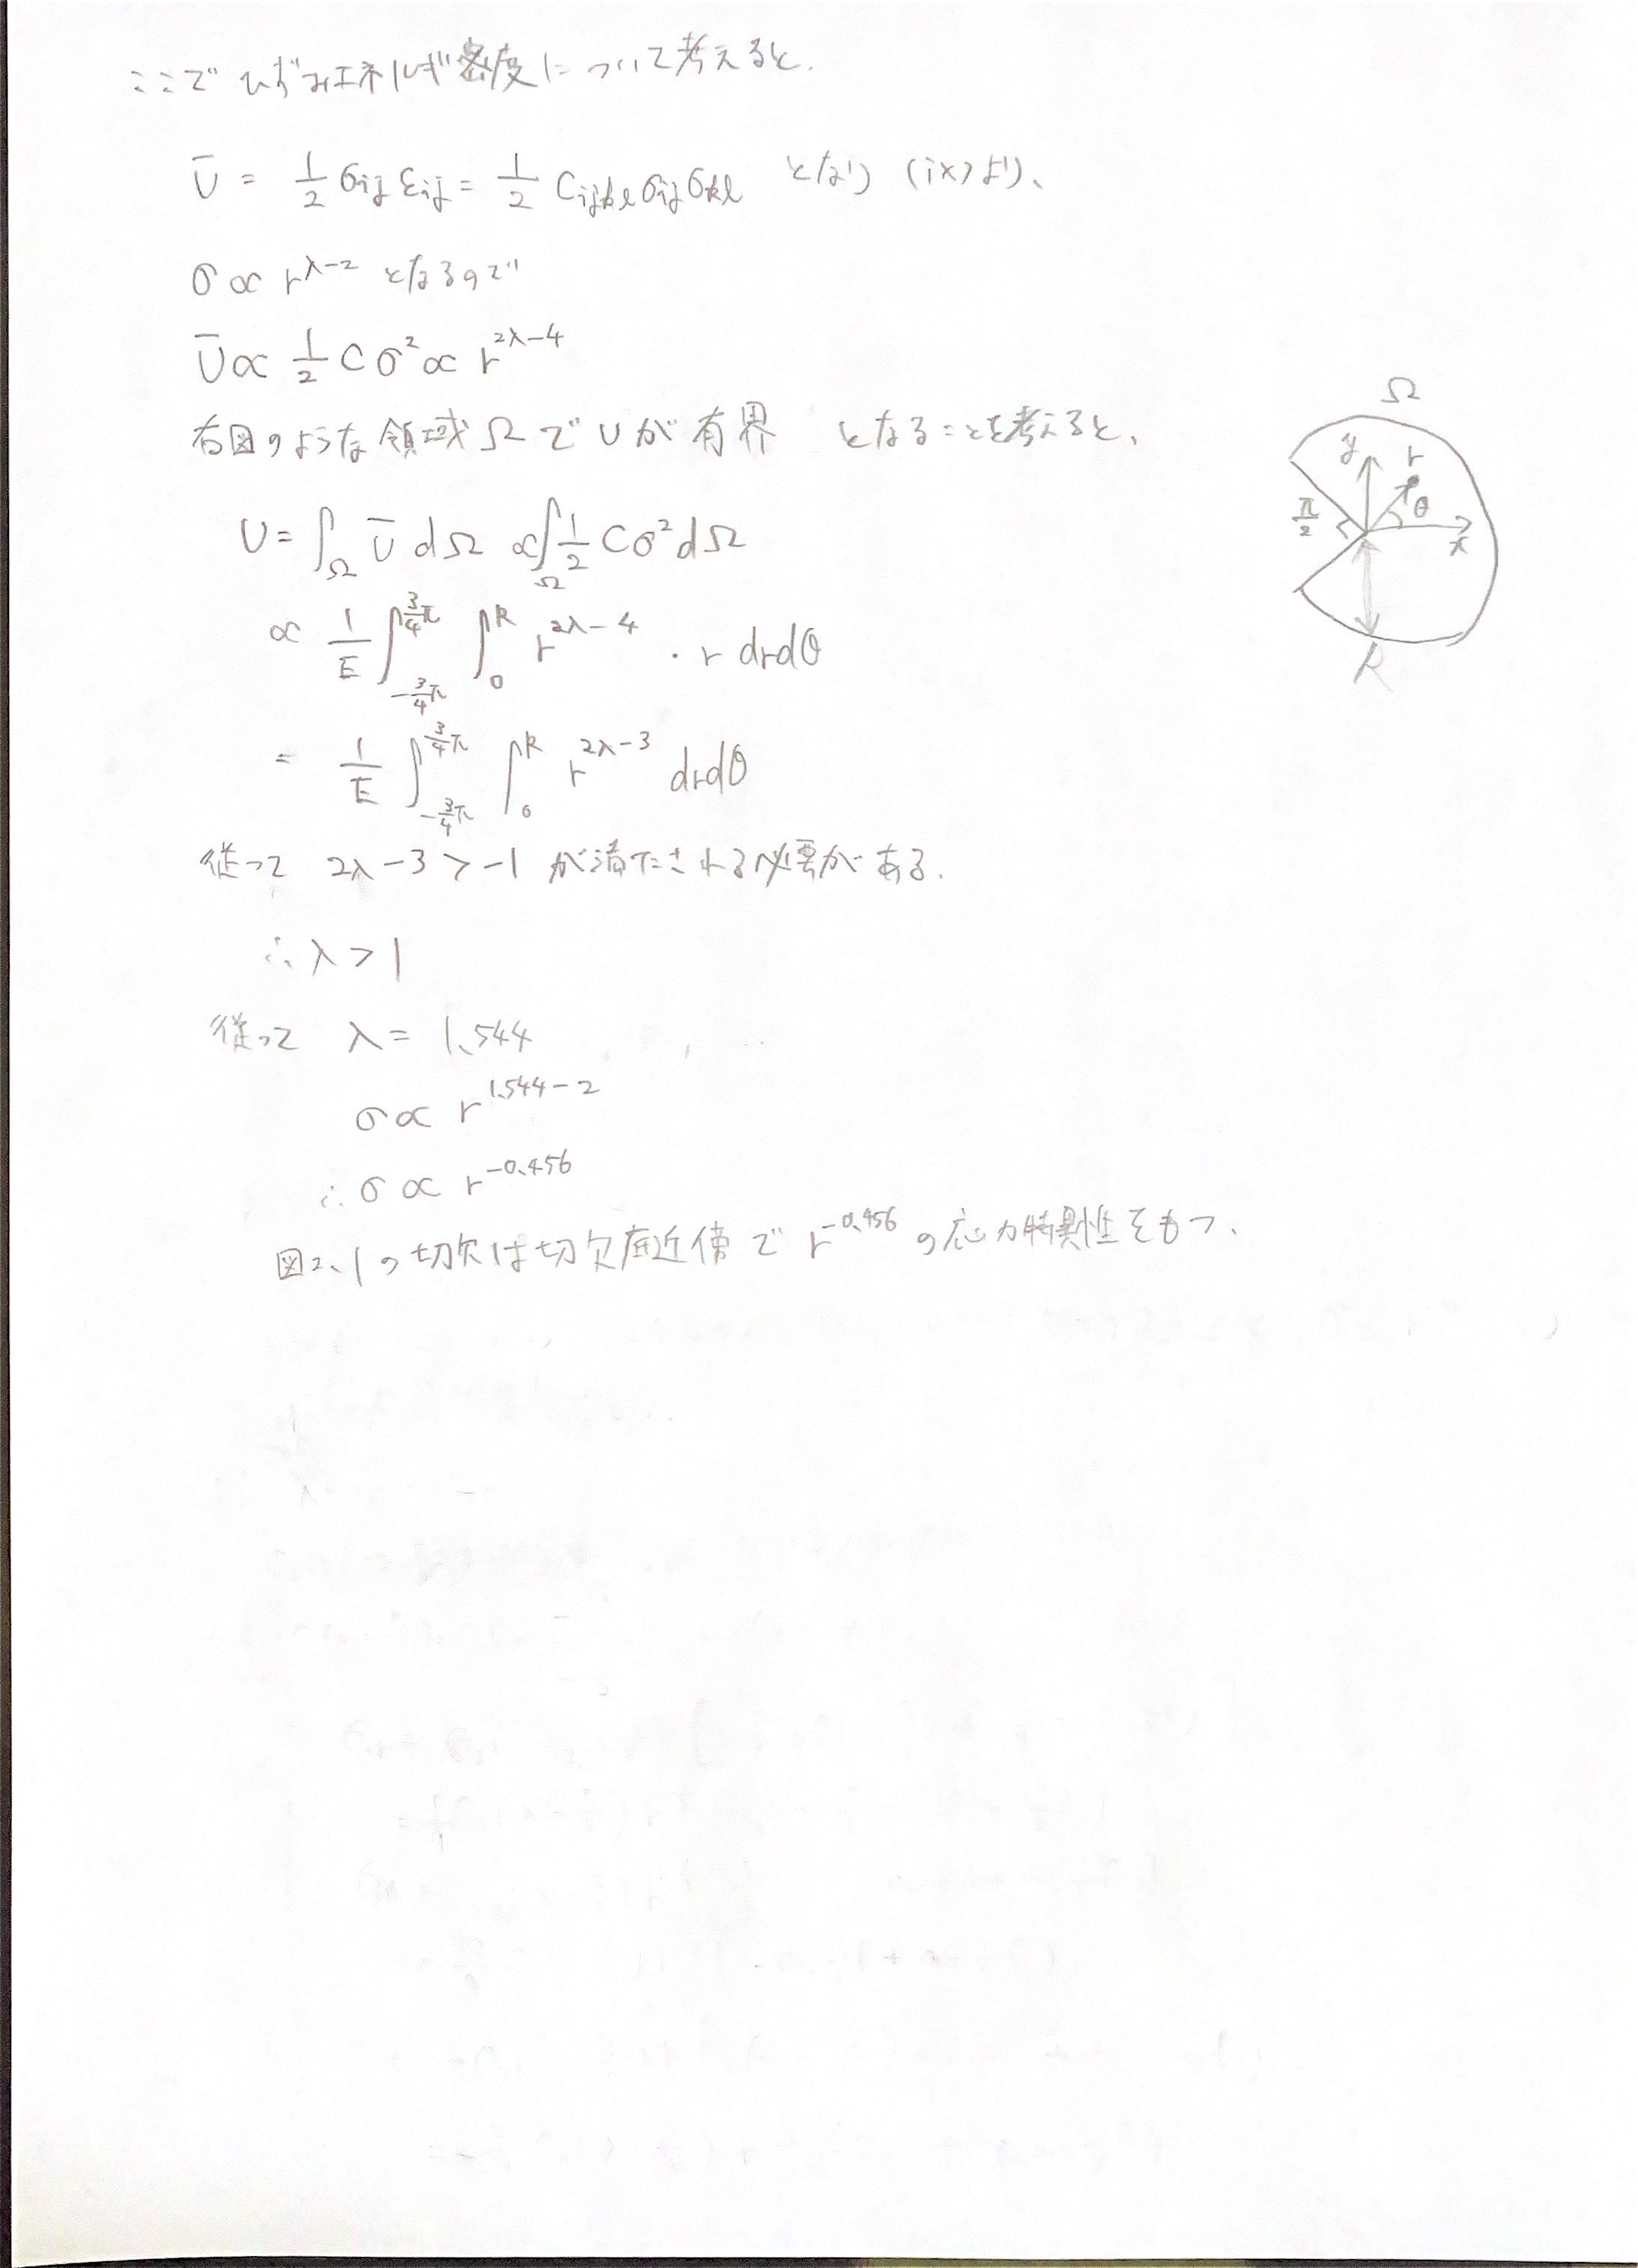 ここで ひずみエネルギ密度について考えると.
Ū = 1/2 σij εij = 1/2 Cijkl σij σkl となり (ix)より、
σ ∝ r^{λ-2} となるので
Ū ∝ 1/2 C σ² ∝ r^{2λ-4}
右図のような領域 Ω で U が 有界 となることを考えると、
U = ∫_Ω Ū dΩ ∝ ∫_Ω 1/2 C σ² dΩ
∝ 1/E ∫_{-3/4π}^{3/4π} ∫_0^R r^{2λ-4} · r dr dθ
= 1/E ∫_{-3/4π}^{3/4π} ∫_0^R r^{2λ-3} dr dθ
従って 2λ-3 > -1 が満たされる必要がある.
∴ λ > 1
従って λ = 1.544
σ ∝ r^{1.544-2}
∴ σ ∝ r^{-0.456}
図2.1の切欠は切欠底近傍で r^{-0.456} の応力特異性をもつ.
Ω
y
r
θ
π/2
x
R